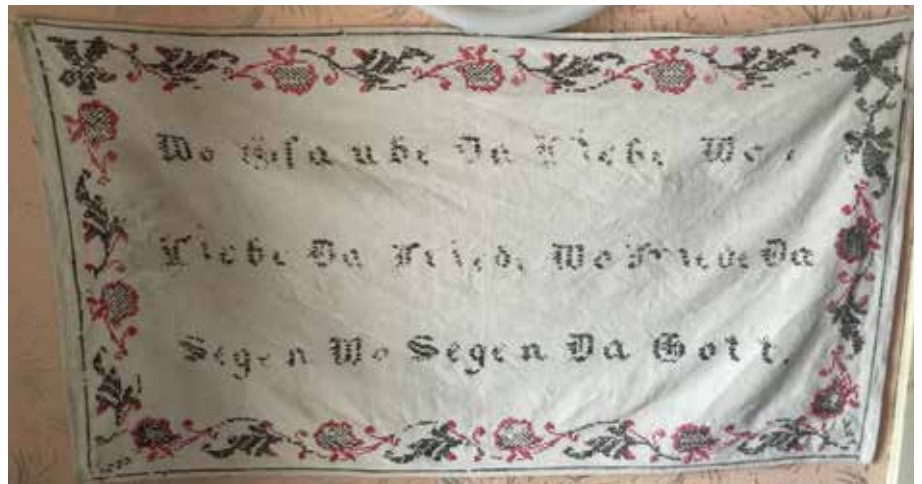 Wo Glaube Da Liebe Wo
Liebe Da Friede Wo Friede Da
Segen Wo Segen Da Gott.